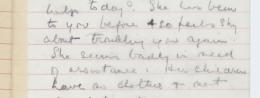 help today? She has been
to you before & so feels shy
about troubling you again
She seems badly in need
of assistance. Her children
have no clothes & not